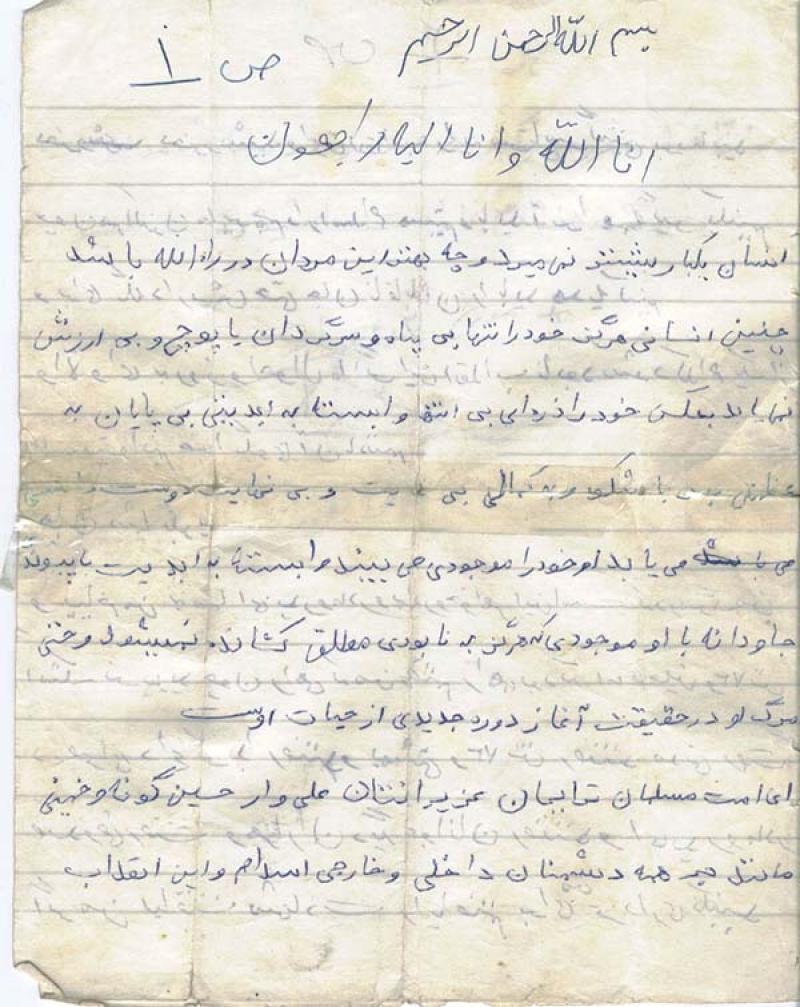 بسم الله الرحمن الرحیم
ص ۱
انا الله وانا الیه راجعون
انسان یکبار بیشتر نمی میرد و چه بهتر این مردان در راه الله باشد
چنین انسانی هرگز خود را تنها بی پناه و سرگردان یا پوچ و بی ارزش
نمیابد بعکس خود را ذره ای بی انتها وابستا به ابدیتی بی پایان به
با شکوه و به کمالی بی و بی نهایت دوست داشتنی
می یابد او خود را موجودی می بیند وابسته به ابدیت با پیوند
جاودانه با او موجودی که هرگز به نابودی مطلق کشانده نمیشود و حتی
مرگ او در حقیقت آغاز دوره جدیدی از حیات اوست
ای امت مسلمان عزیزانتان علی وار حسین گونه و خمینی
مانند همه دشمنان داخلی و خارجی اسلام و این انقلاب